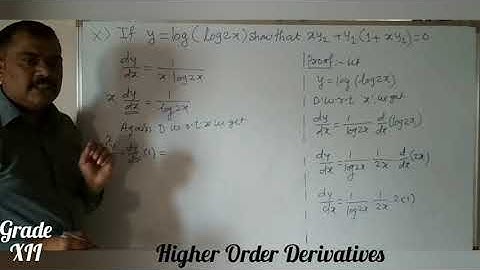 x) If y = log(log2x) show that xy₂ + y₁(1 + xy₁) = 0
dy/dx = 1/(x log2x)
x dy/dx = 1/log2x
Again D w.r.t. x we get
dy/dx (1) =
Proof:- let
y = log(log2x)
D w.r.t 'x' we get
dy/dx = 1/log2x d/dx (log2x)
dy/dx = 1/log2x 1/2x d/dx (2x)
dy/dx = 1/log2x 1/2x 2(1)
Grade
XII
Higher Order Derivatives